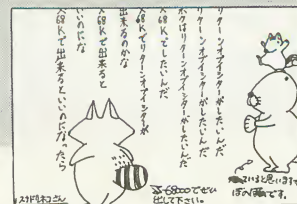 リターンオブイシターがしたいんだ
リターンオブイシターがしたいんだ
ボクはリターンオブイシターがしたいんだ
X68Kでしたいんだ
X68Kでリターンオブイシターが
出来るのかな
X68Kで出来ると
いいのにな
X68Kで出来るといいのになったら
スナドリネコさん
X-68000でぜひ
出して下さい。
いいと思います
ぼのぼのです。